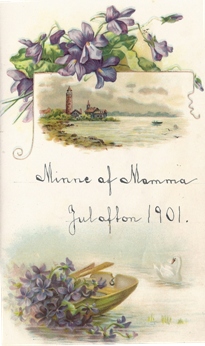 Minne af Mamma
Julafton 1901.